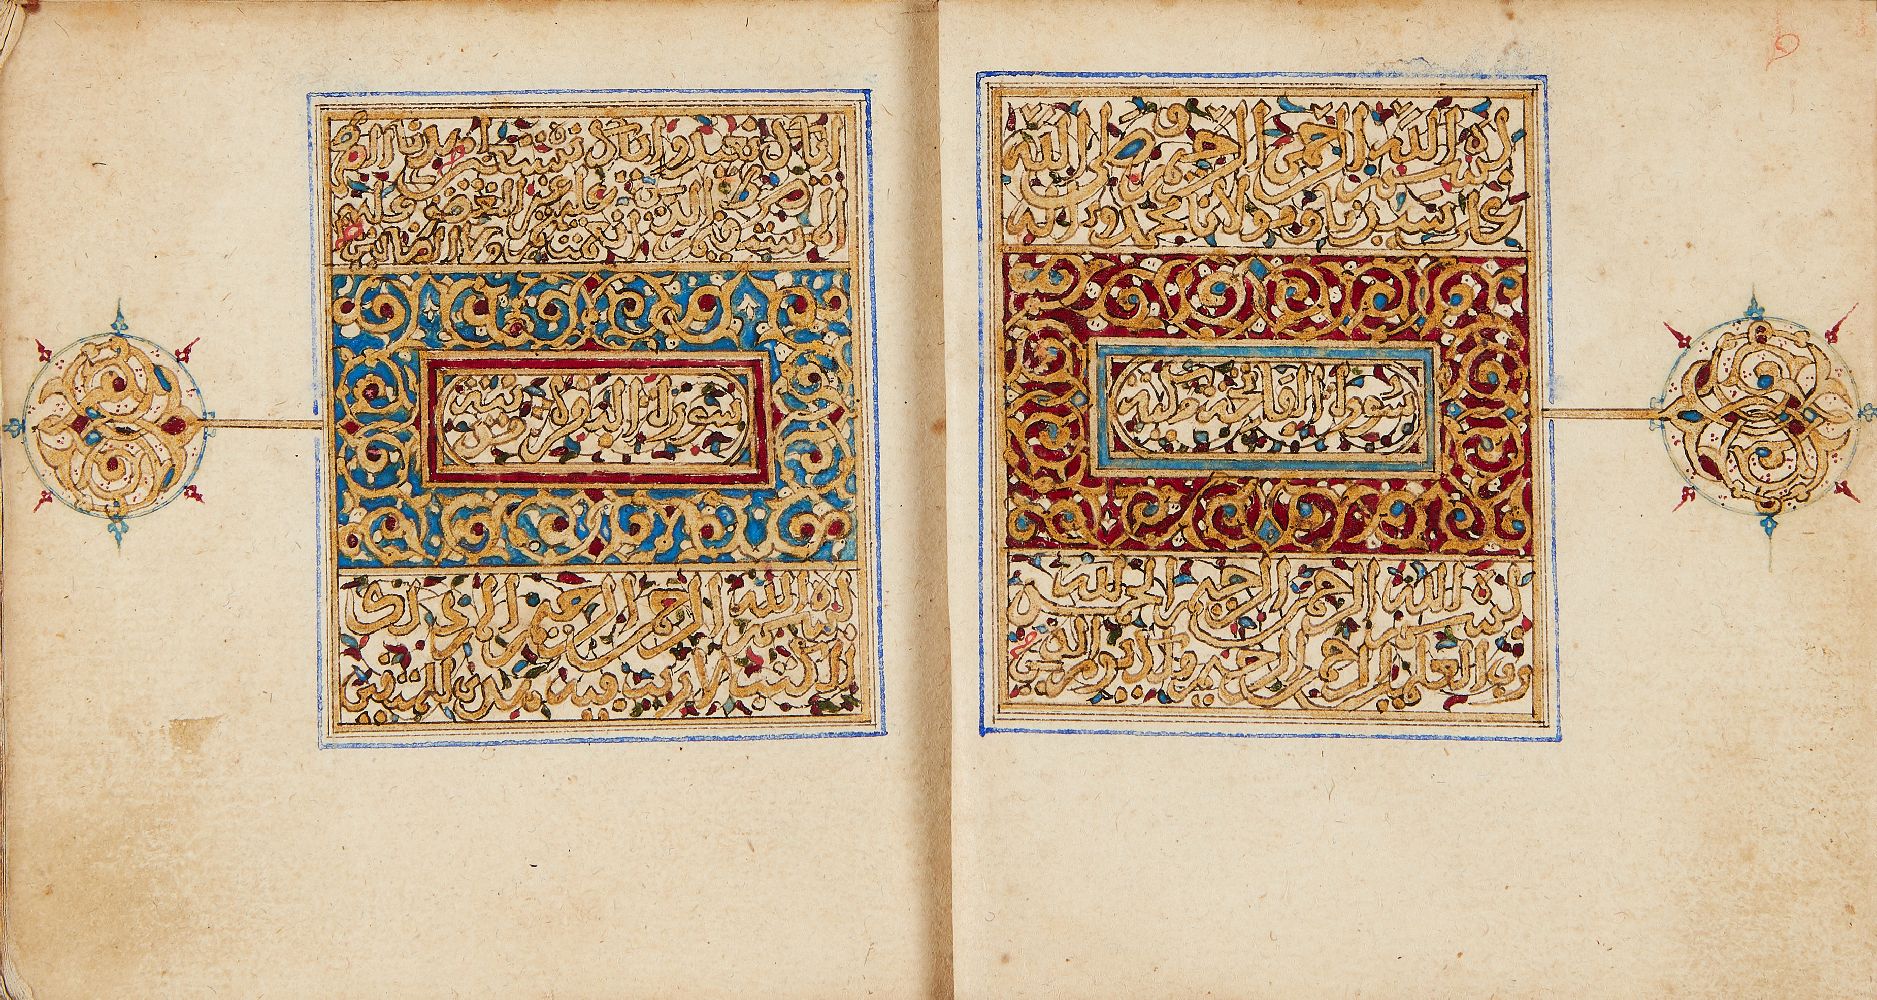 بسم الله الرحمن الرحيم صلى الله
على سيدنا ومولانا محمد وءاله
سورة الفاتحة مكية
بسم الله الرحمن الرحيم الحمد لله
رب العلمين الرحمن الرحيم ملك يوم الدين
اياك نعبد واياك نستعين اهدنا الصرط
المستقيم صرط الذين انعمت عليهم غير المغضوب عليهم
ولا الضالين
سورة البقرة مدنية
بسم الله الرحمن الرحيم الم ذلك
الكتب لا ريب فيه هدى للمتقين